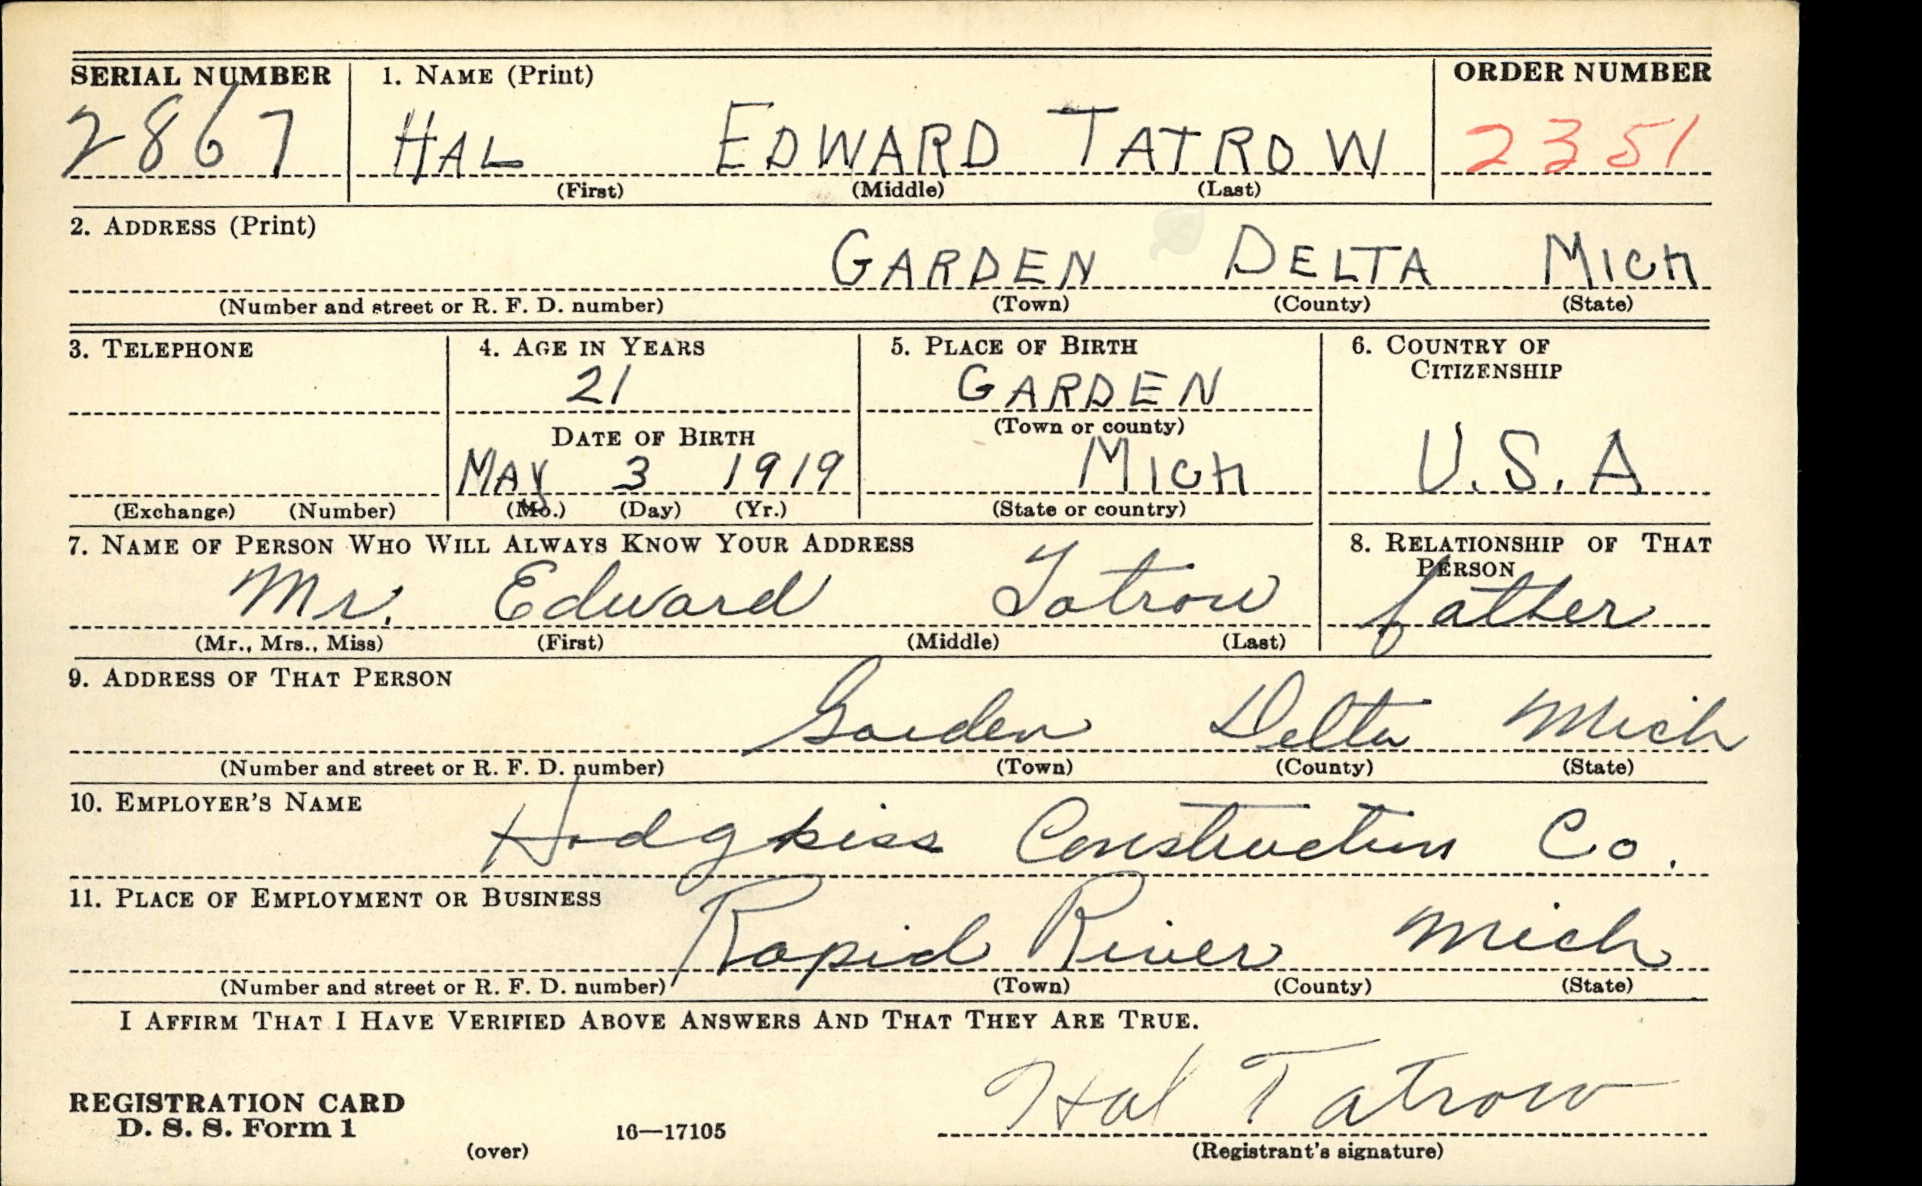 SERIAL NUMBER 1. NAME (Print) ORDER NUMBER
2867 HAL EDWARD TATROW 2351
(First) (Middle) (Last)
2. ADDRESS (Print)
GARDEN DELTA MICH
(Number and street or R. F. D. number) (Town) (County) (State)
3. TELEPHONE 4. AGE IN YEARS 5. PLACE OF BIRTH 6. COUNTRY OF
CITIZENSHIP
21 GARDEN
(Town or county)
DATE OF BIRTH
MAY 3 1919 MICH U.S.A
(Exchange) (Number) (Mo.) (Day) (Yr.) (State or country)
7. NAME OF PERSON WHO WILL ALWAYS KNOW YOUR ADDRESS 8. RELATIONSHIP OF THAT
PERSON
Mr. Edward Tatrow father
(Mr., Mrs., Miss) (First) (Middle) (Last)
9. ADDRESS OF THAT PERSON
Garden Delta Mich
(Number and street or R. F. D. number) (Town) (County) (State)
10. EMPLOYER'S NAME
Hodgkiss Construction Co.
11. PLACE OF EMPLOYMENT OR BUSINESS
Rapid River Mich
(Number and street or R. F. D. number) (Town) (County) (State)
I AFFIRM THAT I HAVE VERIFIED ABOVE ANSWERS AND THAT THEY ARE TRUE.
Hal Tatrow
REGISTRATION CARD
D. S. S. Form 1 16—17105
(over) (Registrant's signature)